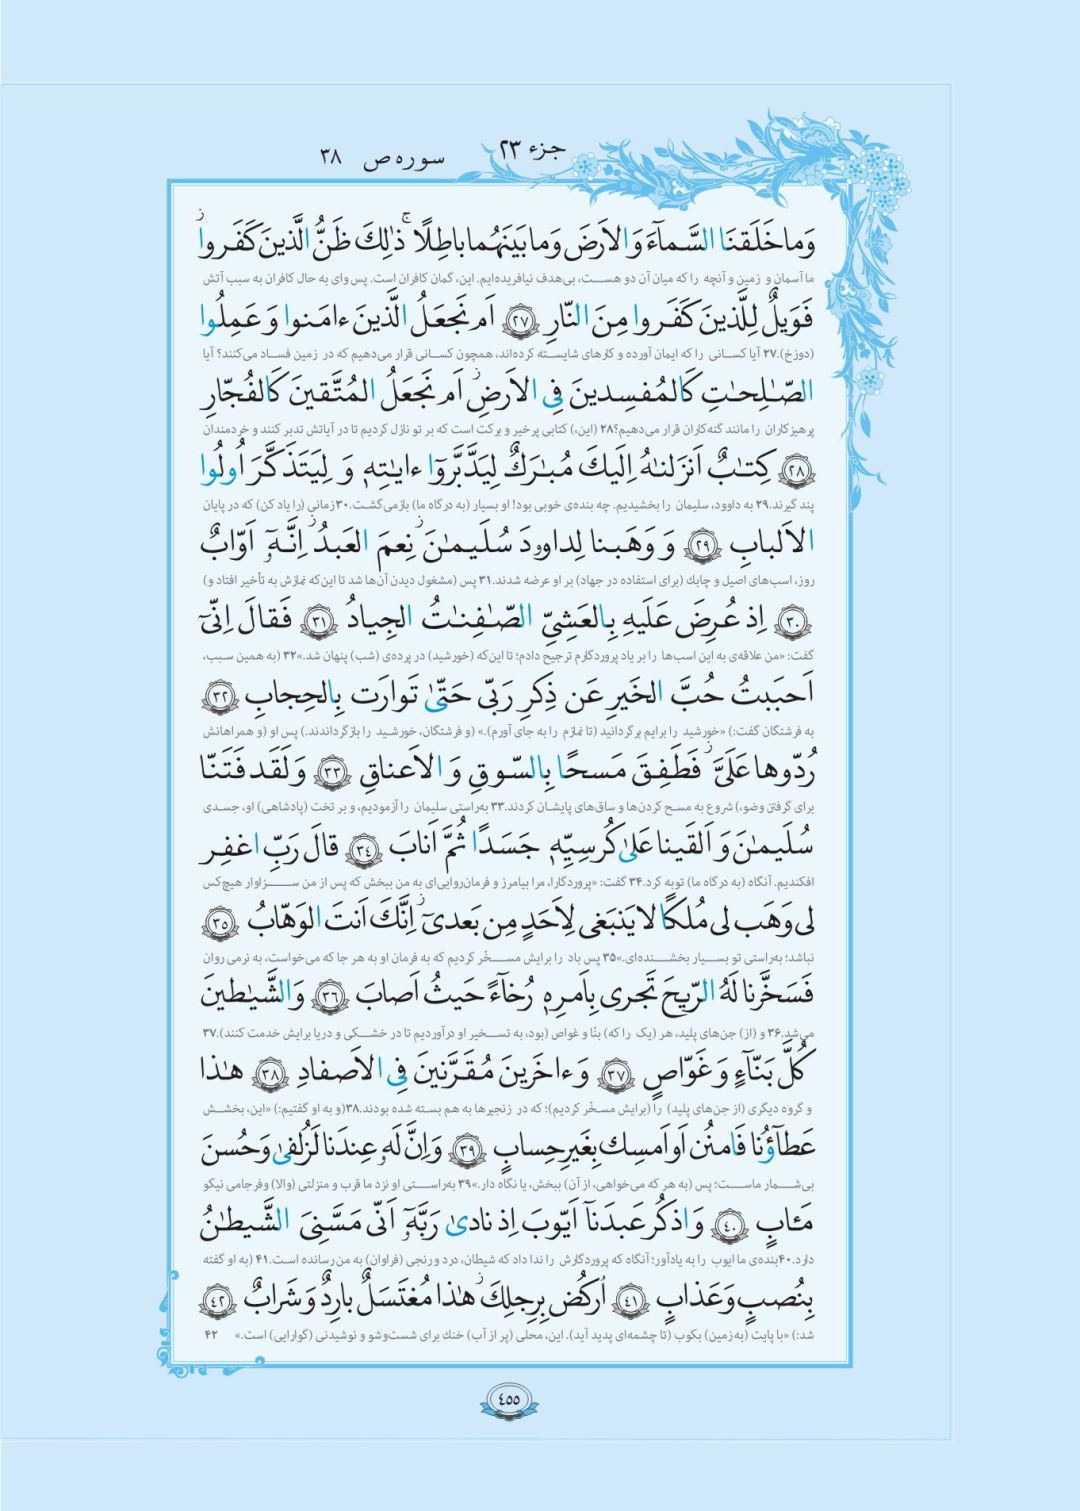 جزء ٢٣
سوره ص ٣٨
وَما خَلَقنَا السَّماۤءَ وَالاَرضَ وَما بَينَهُما باطِلًا ۚ ذٰلِكَ ظَنُّ الَّذينَ كَفَروا ۚ
ما آسمان و زمین و آنچه را که میان آن دو هست، بی‌هدف نیافریده‌ایم. این، گمان کافران است. پس وای به حال کافران به سبب آتش
فَوَيلٌ لِلَّذينَ كَفَروا مِنَ النّارِ ﴿٢٧﴾ اَم نَجعَلُ الَّذينَ ءامَنوا وَ عَمِلُوا
(دوزخ).۲۷ آیا کسانی را که ایمان آورده و کارهای شایسته کرده‌اند، همچون کسانی قرار می‌دهیم که در زمین فساد می‌کنند؟ آیا
الصّٰلِحٰتِ كَالمُفسِدينَ فِى الاَرضِ ۚ اَم نَجعَلُ المُتَّقينَ كَالفُجّارِ
پرهیزکاران را مانند گنه‌کاران قرار می‌دهیم؟۲۸ (این،) کتابی پرخیر و برکت است که بر تو نازل کردیم تا در آیاتش تدبر کنند و خردمندان
﴿٢٨﴾ كِتٰبٌ اَنزَلنٰهُ اِلَيكَ مُبٰرَكٌ لِيَدَّبَّروۤا ءايٰتِهٖ وَ لِيَتَذَكَّرَ اُولُوا
پند گیرند.۲۹ به داوود، سلیمان را بخشیدیم. چه بنده‌ی خوبی بود! او بسیار (به درگاه ما) بازمی‌گشت.۳۰ زمانی (را یاد کن) که در پایان
الاَلبابِ ﴿٢٩﴾ وَ وَهَبنا لِداوودَ سُلَيمٰنَ ۚ نِعمَ العَبدُ ۚ اِنَّهٗۤ اَوّابٌ
روز، اسب‌های اصیل و چابک (برای استفاده در جهاد) بر او عرضه شدند.۳۱ پس (مشغول دیدن آن‌ها شد تا این‌که نمازش به تأخیر افتاد و)
﴿٣٠﴾ اِذ عُرِضَ عَلَيهِ بِالعَشِىِّ الصّٰفِنٰتُ الجِيادُ ﴿٣١﴾ فَقالَ اِنّىۤ
گفت: «من علاقه‌ی به این اسب‌ها را بر یاد پروردگارم ترجیح دادم؛ تا این‌که (خورشید) در پرده‌ی (شب) پنهان شد.»۳۲ (به همین سبب،
اَحبَبتُ حُبَّ الخَيرِ عَن ذِكرِ رَبّى حَتّىٰ تَوارَت بِالحِجابِ ﴿٣٢﴾
به فرشتگان گفت:) «خورشید را برایم برگردانید (تا نمازم را به جای آورم).» (و فرشتگان، خورشید را بازگرداندند.) پس او (و همراهانش
رُدّوها عَلَىَّ ۚ فَطَفِقَ مَسحًا بِالسّوقِ وَ الاَعناقِ ﴿٣٣﴾ وَ لَقَد فَتَنّا
برای گرفتن وضو،) شروع به مسح گردن‌ها و ساق‌های پایشان کردند.۳۳ به‌راستی سلیمان را آزمودیم، و بر تخت (پادشاهی) او، جسدی
سُلَيمٰنَ وَ اَلقَينا عَلىٰ كُرسِيِّهٖ جَسَدًا ثُمَّ اَنابَ ﴿٣٤﴾ قالَ رَبِّ اغفِر
افکندیم. آنگاه (به درگاه ما) توبه کرد.۳۴ گفت: «پروردگارا، مرا بیامرز و فرمان‌روایی‌ای به من ببخش که پس از من سزاوار هیچ‌کس
لى وَ هَب لى مُلكًا لا يَنبَغى لِاَحَدٍ مِن بَعدىۤ ۚ اِنَّكَ اَنتَ الوَهّابُ ﴿٣٥﴾
نباشد؛ به‌راستی تو بسیار بخشنده‌ای.»۳۵ پس باد را برایش مسخّر کردیم که به فرمان او به هر جا که می‌خواست، به نرمی روان
فَسَخَّرنا لَهُ الرّيحَ تَجرى بِاَمرِهٖ رُخاۤءً حَيثُ اَصابَ ﴿٣٦﴾ وَالشَّيٰطينَ
می‌شد.۳۶ و (از) جن‌های پلید، هر (یک را که) بنّا و غواص (بود، به تسخیر او درآوردیم تا در خشکی و دریا برایش خدمت کنند).۳۷
كُلَّ بَنّاۤءٍ وَ غَوّاصٍ ﴿٣٧﴾ وَ ءاخَرينَ مُقَرَّنينَ فِى الاَصفادِ ﴿٣٨﴾ هٰذا
و گروه دیگری (از جن‌های پلید) را (برایش مسخّر کردیم)؛ که در زنجیرها به هم بسته شده بودند.۳۸(و به او گفتیم:) «این، بخشش
عَطاۤؤُنا فَامنُن اَو اَمسِك بِغَيرِ حِسابٍ ﴿٣٩﴾ وَ اِنَّ لَهٗ عِندَنا لَزُلفىٰ وَ حُسنَ
بی‌شمار ماست؛ پس (به هر که می‌خواهی، از آن) ببخش، یا نگاه دار.»۳۹ به‌راستی او نزد ما قرب و منزلتی (والا) وفرجامی نیکو
مَـٔابٍ ﴿٤٠﴾ وَ اذكُر عَبدَناۤ اَيّوبَ اِذ نادىٰ رَبَّهٗۤ اَنّى مَسَّنِىَ الشَّيطٰنُ
دارد.۴۰بنده‌ی ما ایوب را به یادآور؛ آنگاه که پروردگارش را ندا داد که شیطان، درد و رنجی (فراوان) به من رسانده است.۴۱ (به او گفته
بِنُصبٍ وَ عَذابٍ ﴿٤١﴾ اُركُض بِرِجلِكَ ۚ هٰذا مُغتَسَلٌ بارِدٌ وَ شَرابٌ ﴿٤٢﴾
شد:) «با پایت (به‌زمین) بکوب (تا چشمه‌ای پدید آید). این، محلی (پر از آب) خنک برای شست‌وشو و نوشیدنی (گوارایی) است.» ۴۲
٤٥٥